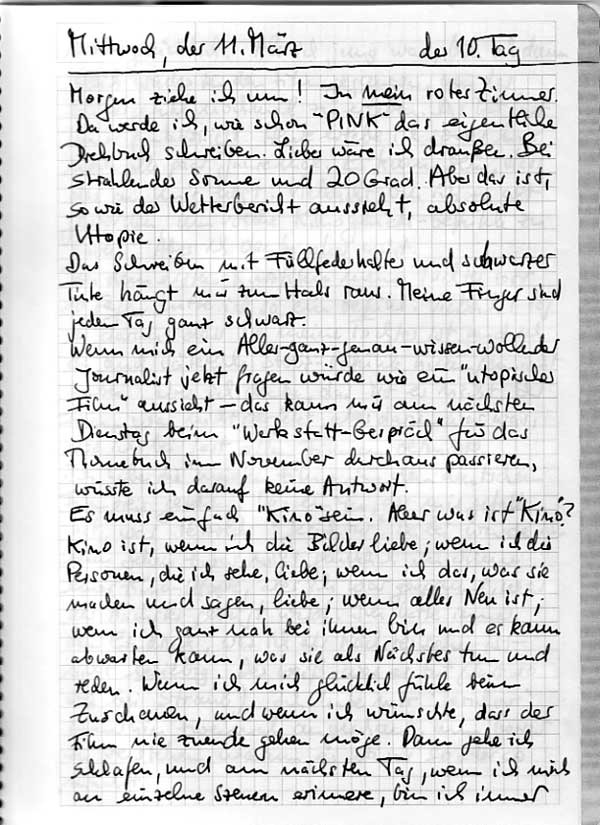 Mittwoch, der 11. März der 10. Tag
Morgen ziehe ich um! In mein rotes Zimmer.
Da werde ich, wie schon "PINK" das eigentliche
Drehbuch schreiben. Lieber wäre ich draußen. Bei
strahlender Sonne und 20 Grad. Aber das ist,
so wie der Wetterbericht aussieht, absolute
Utopie.
Das Schreiben mit Füllfederhalter und schwarzer
Tinte hängt mir zum Hals raus. Meine Finger sind
jeden Tag ganz schwarz.
Wenn mich ein Alles-ganz-genau-wissen-wollender
Journalist jetzt fragen würde wie ein "utopischer
Film" aussieht – das kann mir am nächsten
Dienstag beim "Werkstatt-Gespräch" für das
Filmebuch im November durchaus passieren,
wüsste ich darauf keine Antwort.
Es muss einfach "Kino" sein. Aber was ist "Kino"?
Kino ist, wenn ich die Bilder liebe; wenn ich die
Personen, die ich sehe, liebe; wenn ich das, was sie
machen und sagen, liebe; wenn alles Neu ist;
wenn ich ganz nah bei ihnen bin und es kaum
abwarten kann, was sie als Nächstes tun und
reden. Wenn ich mich glücklich fühle beim
Zuschauen, und wenn ich wünschte, dass der
Film nie zuende gehen möge. Dann gehe ich
schlafen, und am nächsten Tag, wenn ich mich
an einzelne Szenen erinnere, bin ich immer